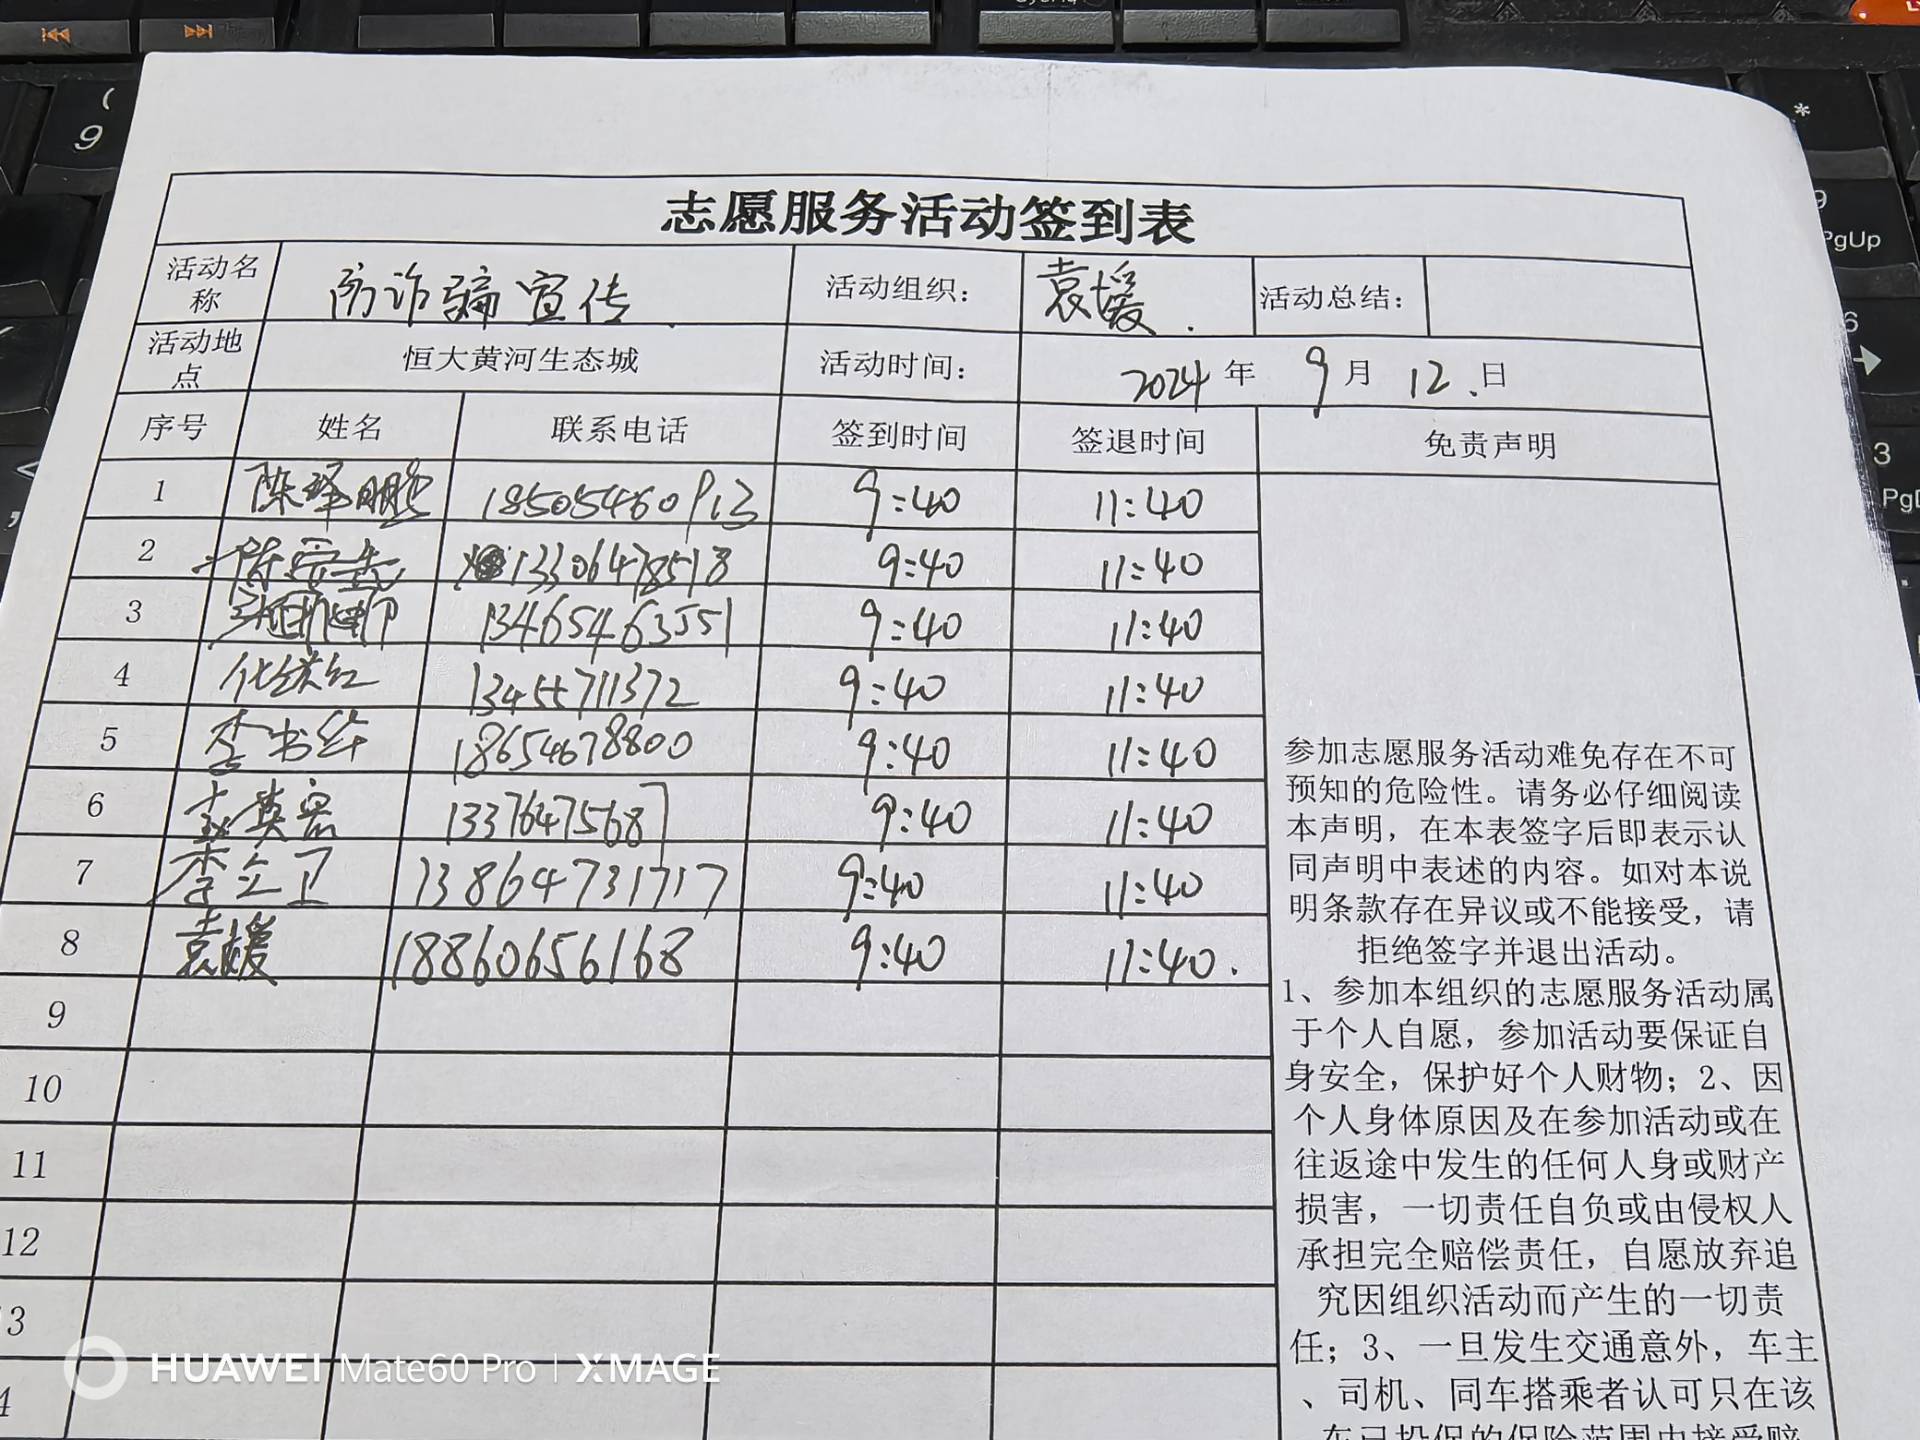 志愿服务活动签到表
活动名称 防诈骗宣传 活动组织: 袁媛 活动总结:
活动地点 恒大黄河生态城 活动时间: 2024 年 9 月 12 日
序号 姓名 联系电话 签到时间 签退时间 免责声明
1 陈泽鹏 18505460913 9:40 11:40
2 13306478518 9:40 11:40
3 13465463551 9:40 11:40
4 13455711372 9:40 11:40
5 李书华 18654678800 9:40 11:40
6 13376475687 9:40 11:40
7 李立卫 13864731717 9:40 11:40
8 袁媛 18860656168 9:40 11:40.
9
10
11
12
3
4
参加志愿服务活动难免存在不可
预知的危险性。请务必仔细阅读
本声明，在本表签字后即表示认
同声明中表述的内容。如对本说
明条款存在异议或不能接受，请
拒绝签字并退出活动。
1、参加本组织的志愿服务活动属
于个人自愿，参加活动要保证自
身安全，保护好个人财物；2、因
个人身体原因及在参加活动或在
往返途中发生的任何人身或财产
损害，一切责任自负或由侵权人
承担完全赔偿责任，自愿放弃追
究因组织活动而产生的一切责
任；3、一旦发生交通意外，车主
、司机、同车搭乘者认可只在该
车已投保的保险范围内接受赔
HUAWEI Mate60 Pro | XMAGE
9
PgUp
6
3